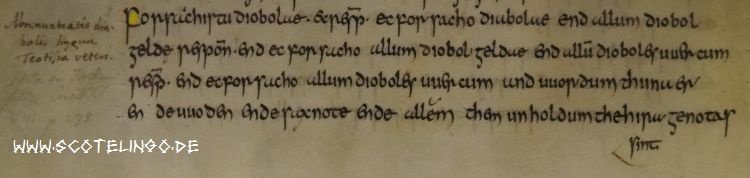 Abrenuntiatio dia-
boli lingua
Teotisca veter.
Forsachistu diobolae. & resp̄. ec forsacho diabolae end allum diobol
gelde respoñ. end ec forsacho allum diobol geldae end allū dioboles uuercum
resp̄. end ec forsacho allum dioboles uuercum and uuordum thuna er
en de uuoden ende saxnote ende allem them unholdum the hira genotas
sint
WWW.SCOTELINGO.DE